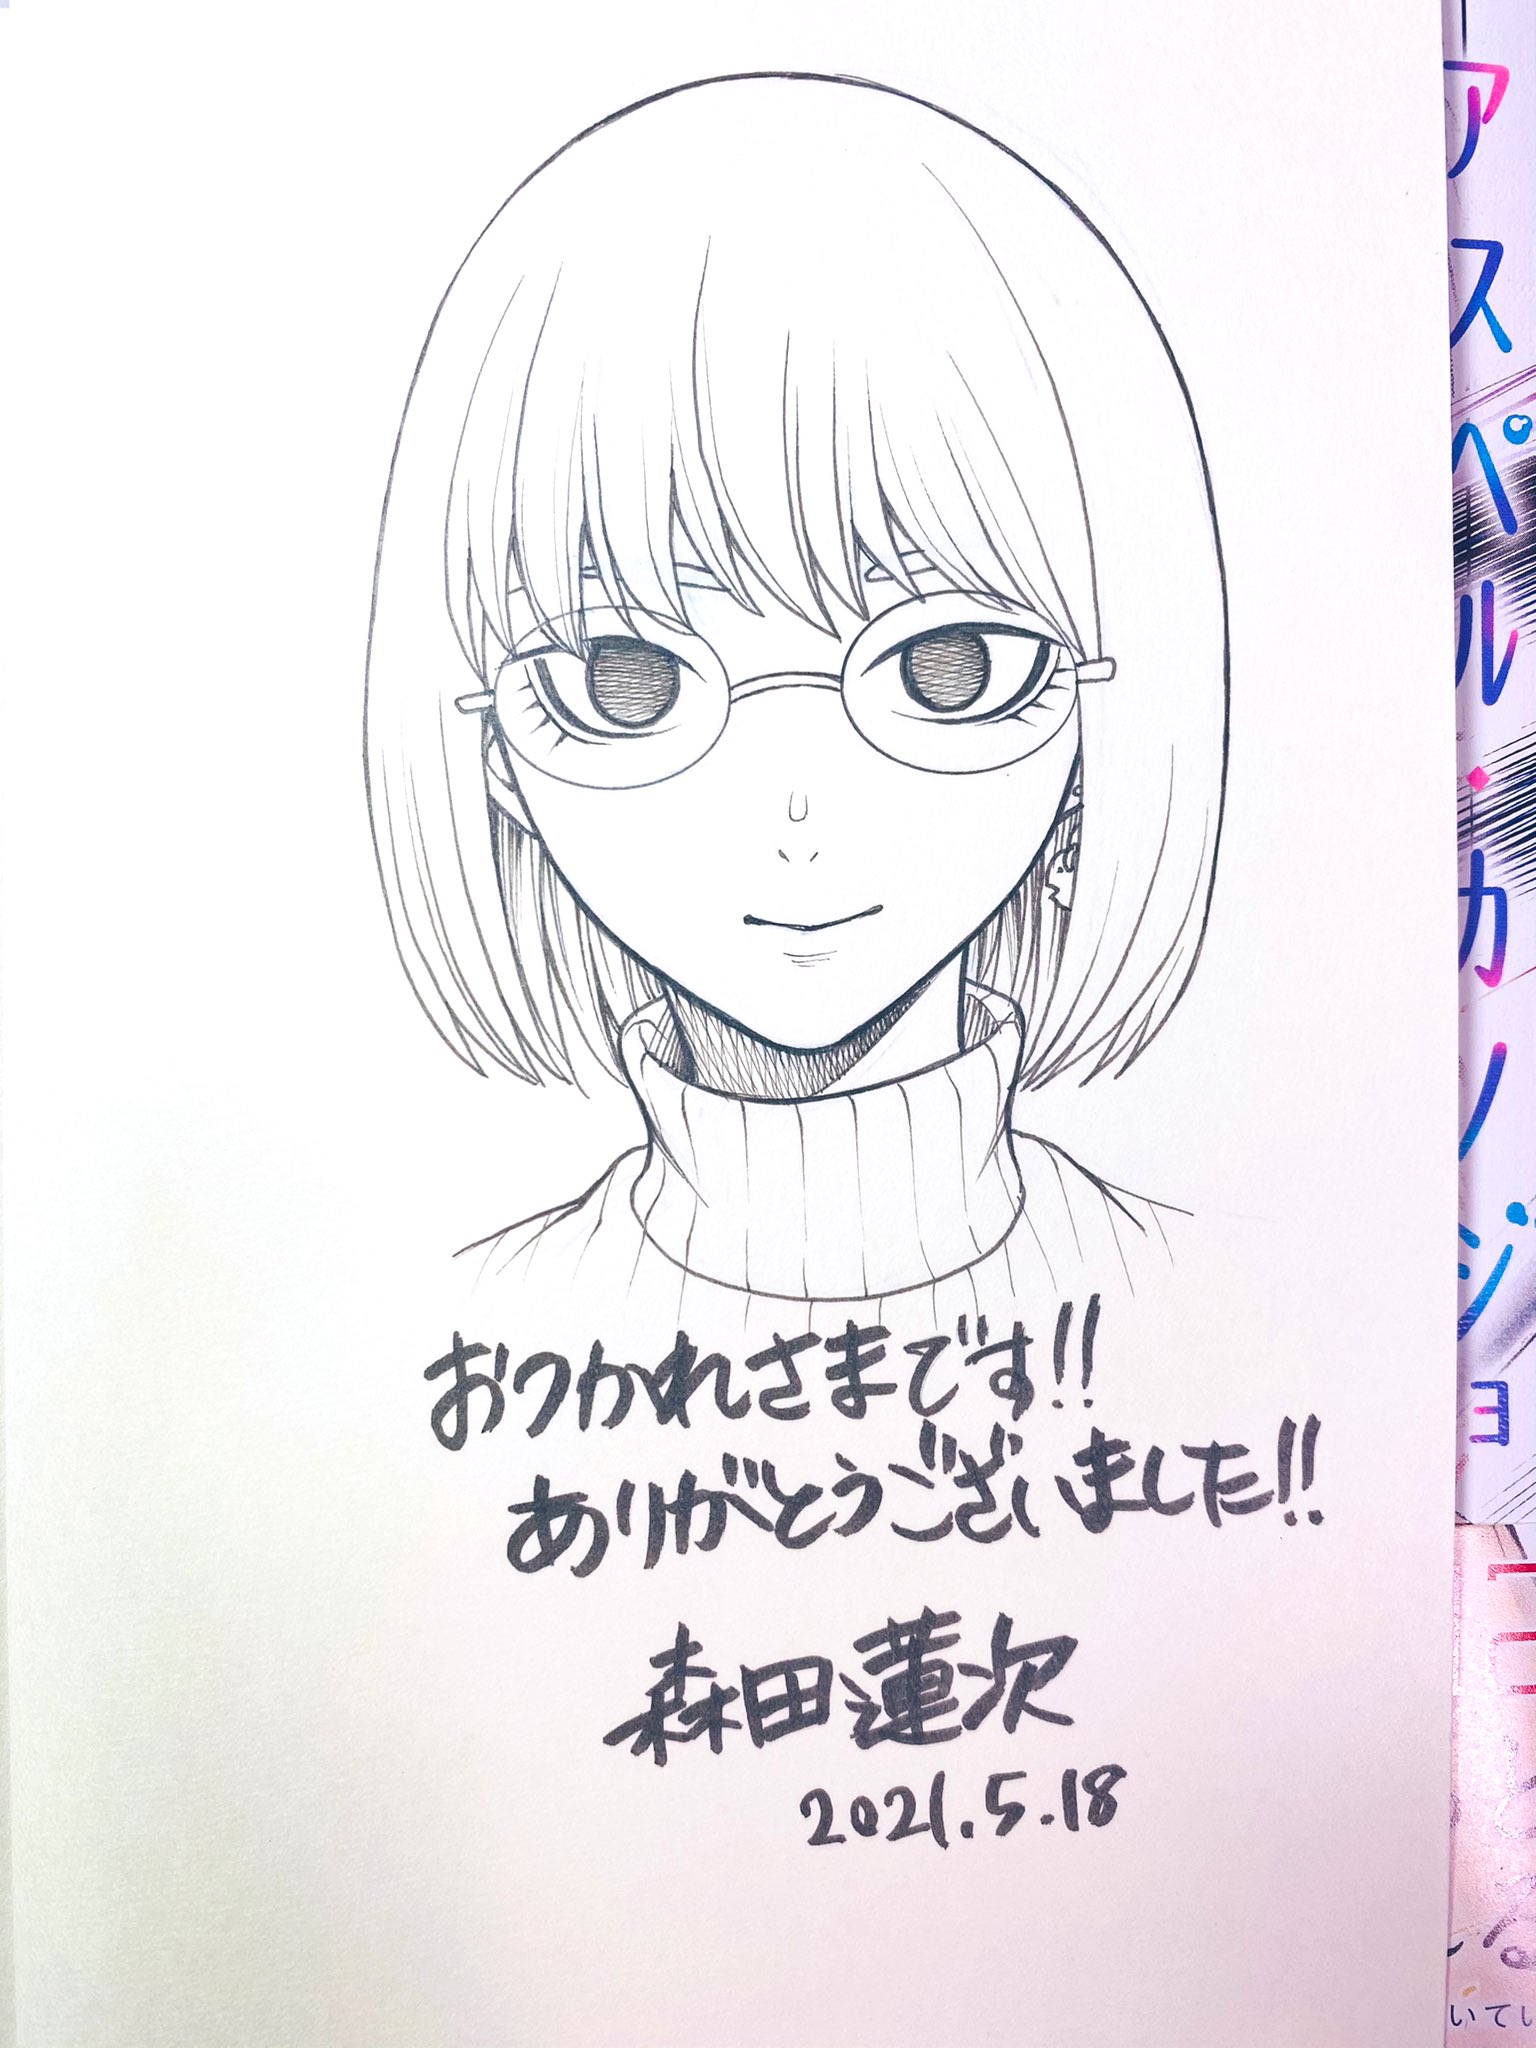 おつかれさまです!!
ありがとうございました!!
森田蓮次
2021.5.18
アスペル・カノジョ
いてい